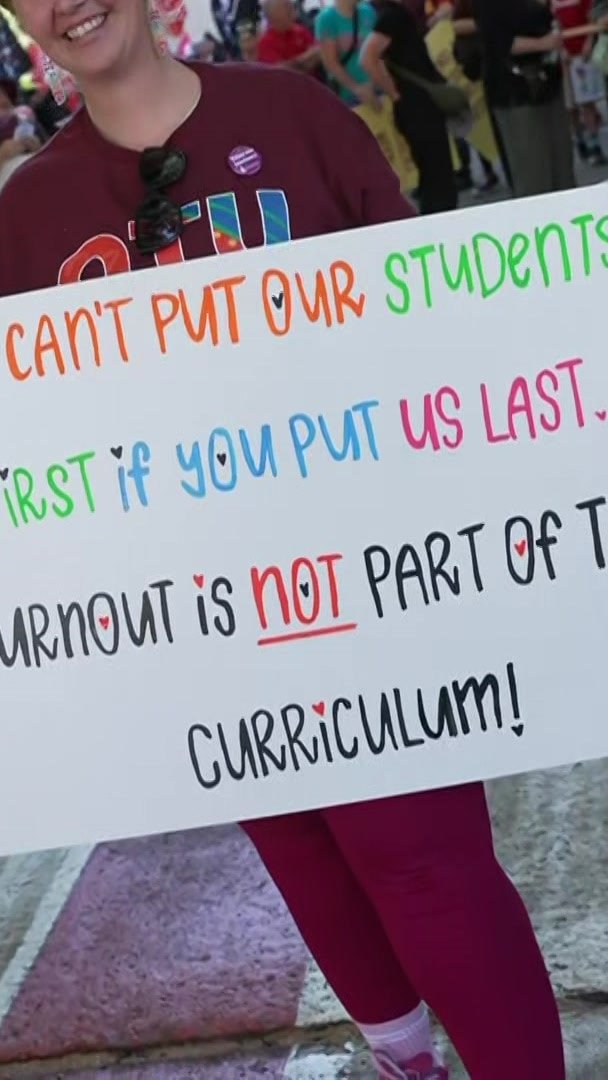 CAN'T PUT OUR STUDENTS
FIRST if YOU PUT US LAST.
BURNOUT is NOT PART Of T
CURRiCULUM!